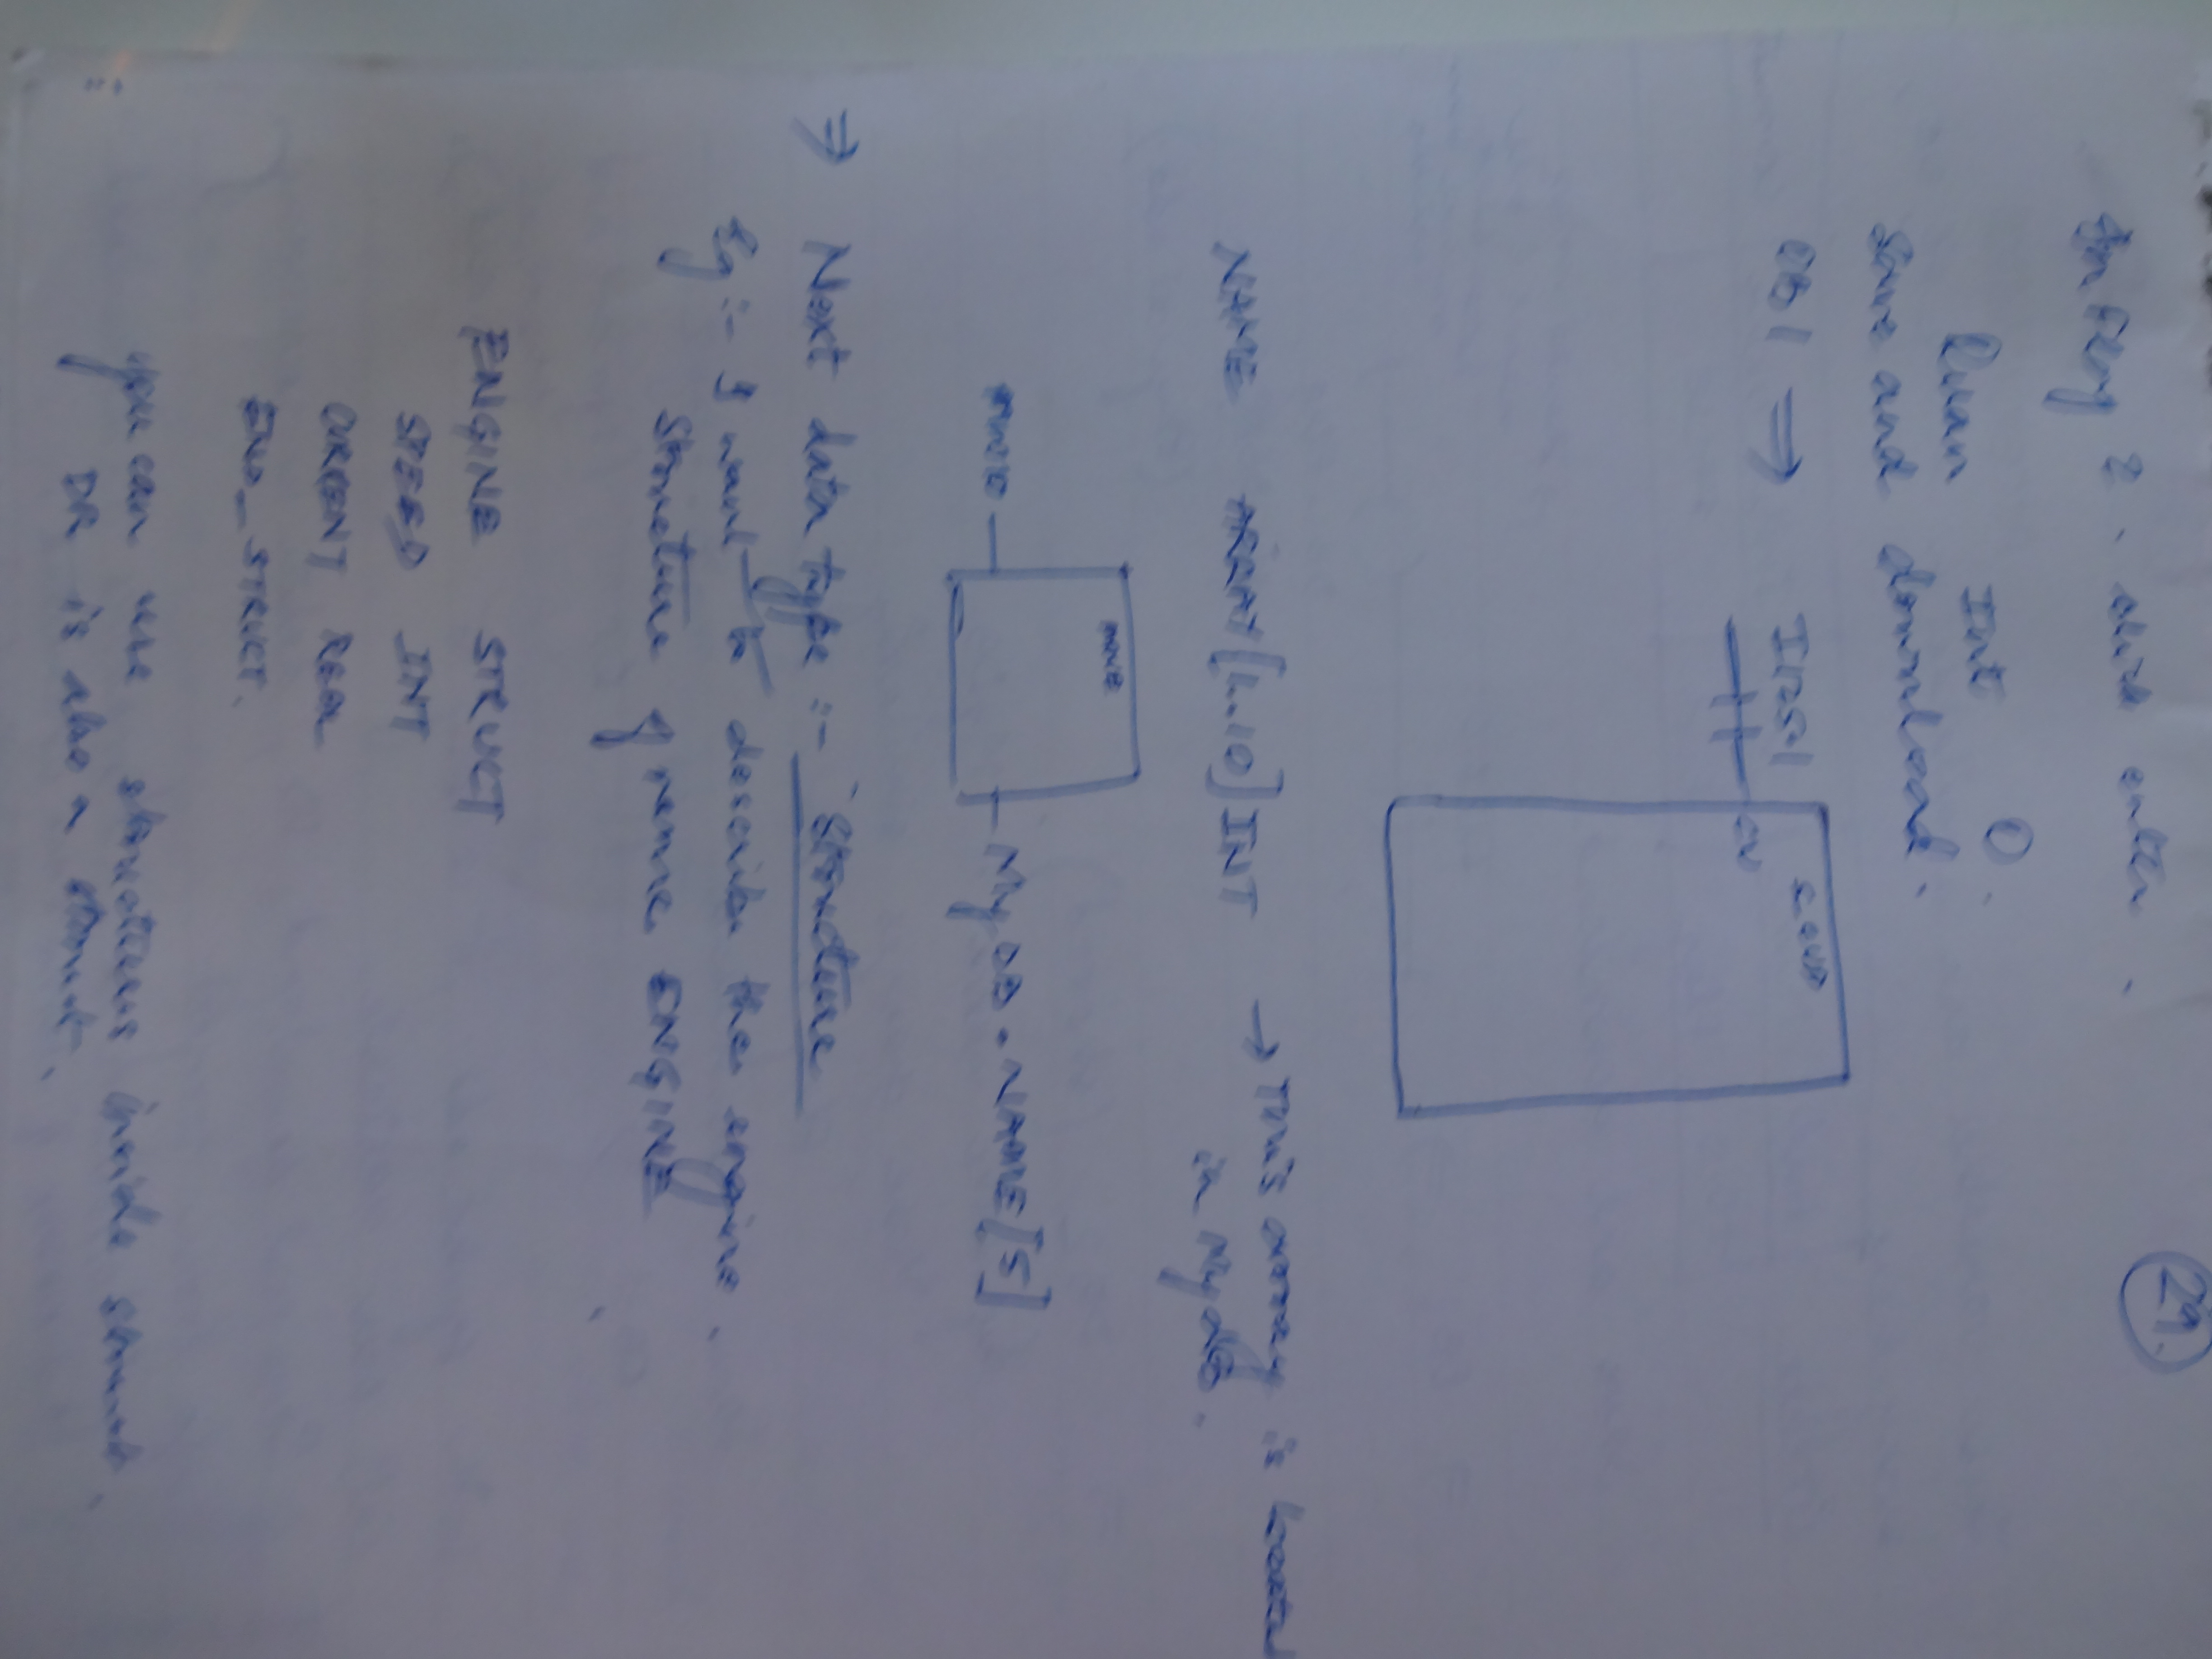 29.
2. also enter.
Quan Int 0.
Save and download.
OB1 ⇒ I125.1
CV
NAME ARRAY [1..10] INT → THIS array is located
in MyDB.
MOVE
MW10 MyDB.NAME[5]
⇒ Next data type :- Structure
Eg :- I want to describe the engine.
Structure of name ENGINE.
ENGINE STRUCT
SPEED INT
CURRENT REAL
END_STRUCT.
you can use structures inside struct.
DB is also a struct.